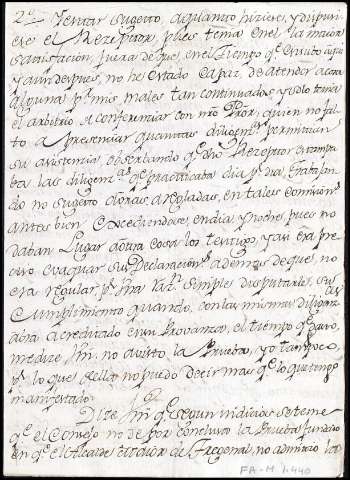 2º Jentar sugeto, aqilantro hiziere, y dispu
ere el Rezeptor, pues tenia en el la maior
satisfacion, fuera de que, en el Tiempo qe estubo aqui
y aun despues, no he estado Capaz, de atender a cosa
alguna pr mis males tan continuados y solo tenia
el arbitrio a Conferenciar con nro Prior, quien no fal
to a Presenciar quantas diligens permitian
su asistencia, observando qe dho Rezeptor estampa
ba las diligenzas qe practicaba dia pr dia, trata
do no sugeto a oras arregladas, en tales comisions
antes bien Excediendose, en dia y noche, pues no
daban Lugar a otra Cosa los testigos, y asi era pre
ciso evaquar sus Declaracions ademas de que, no
era regular pr mi simple disputarle, su
Cumplimiento quando, con las mismas diligenzas
abra acreditado en su Probanza, el tiempo qe gasto,
me dize no asistio, la Prueba, yo tampoco,
pr lo que Rella no puedo decir mas qe lo que tengo
manifestado.
Dize qe segun indicios se teme
qe el Consejo no de por conclusa la Prueba, fundado
en qe el Alcalde maior de Fregenal, no admitio los
FA-M 1.440